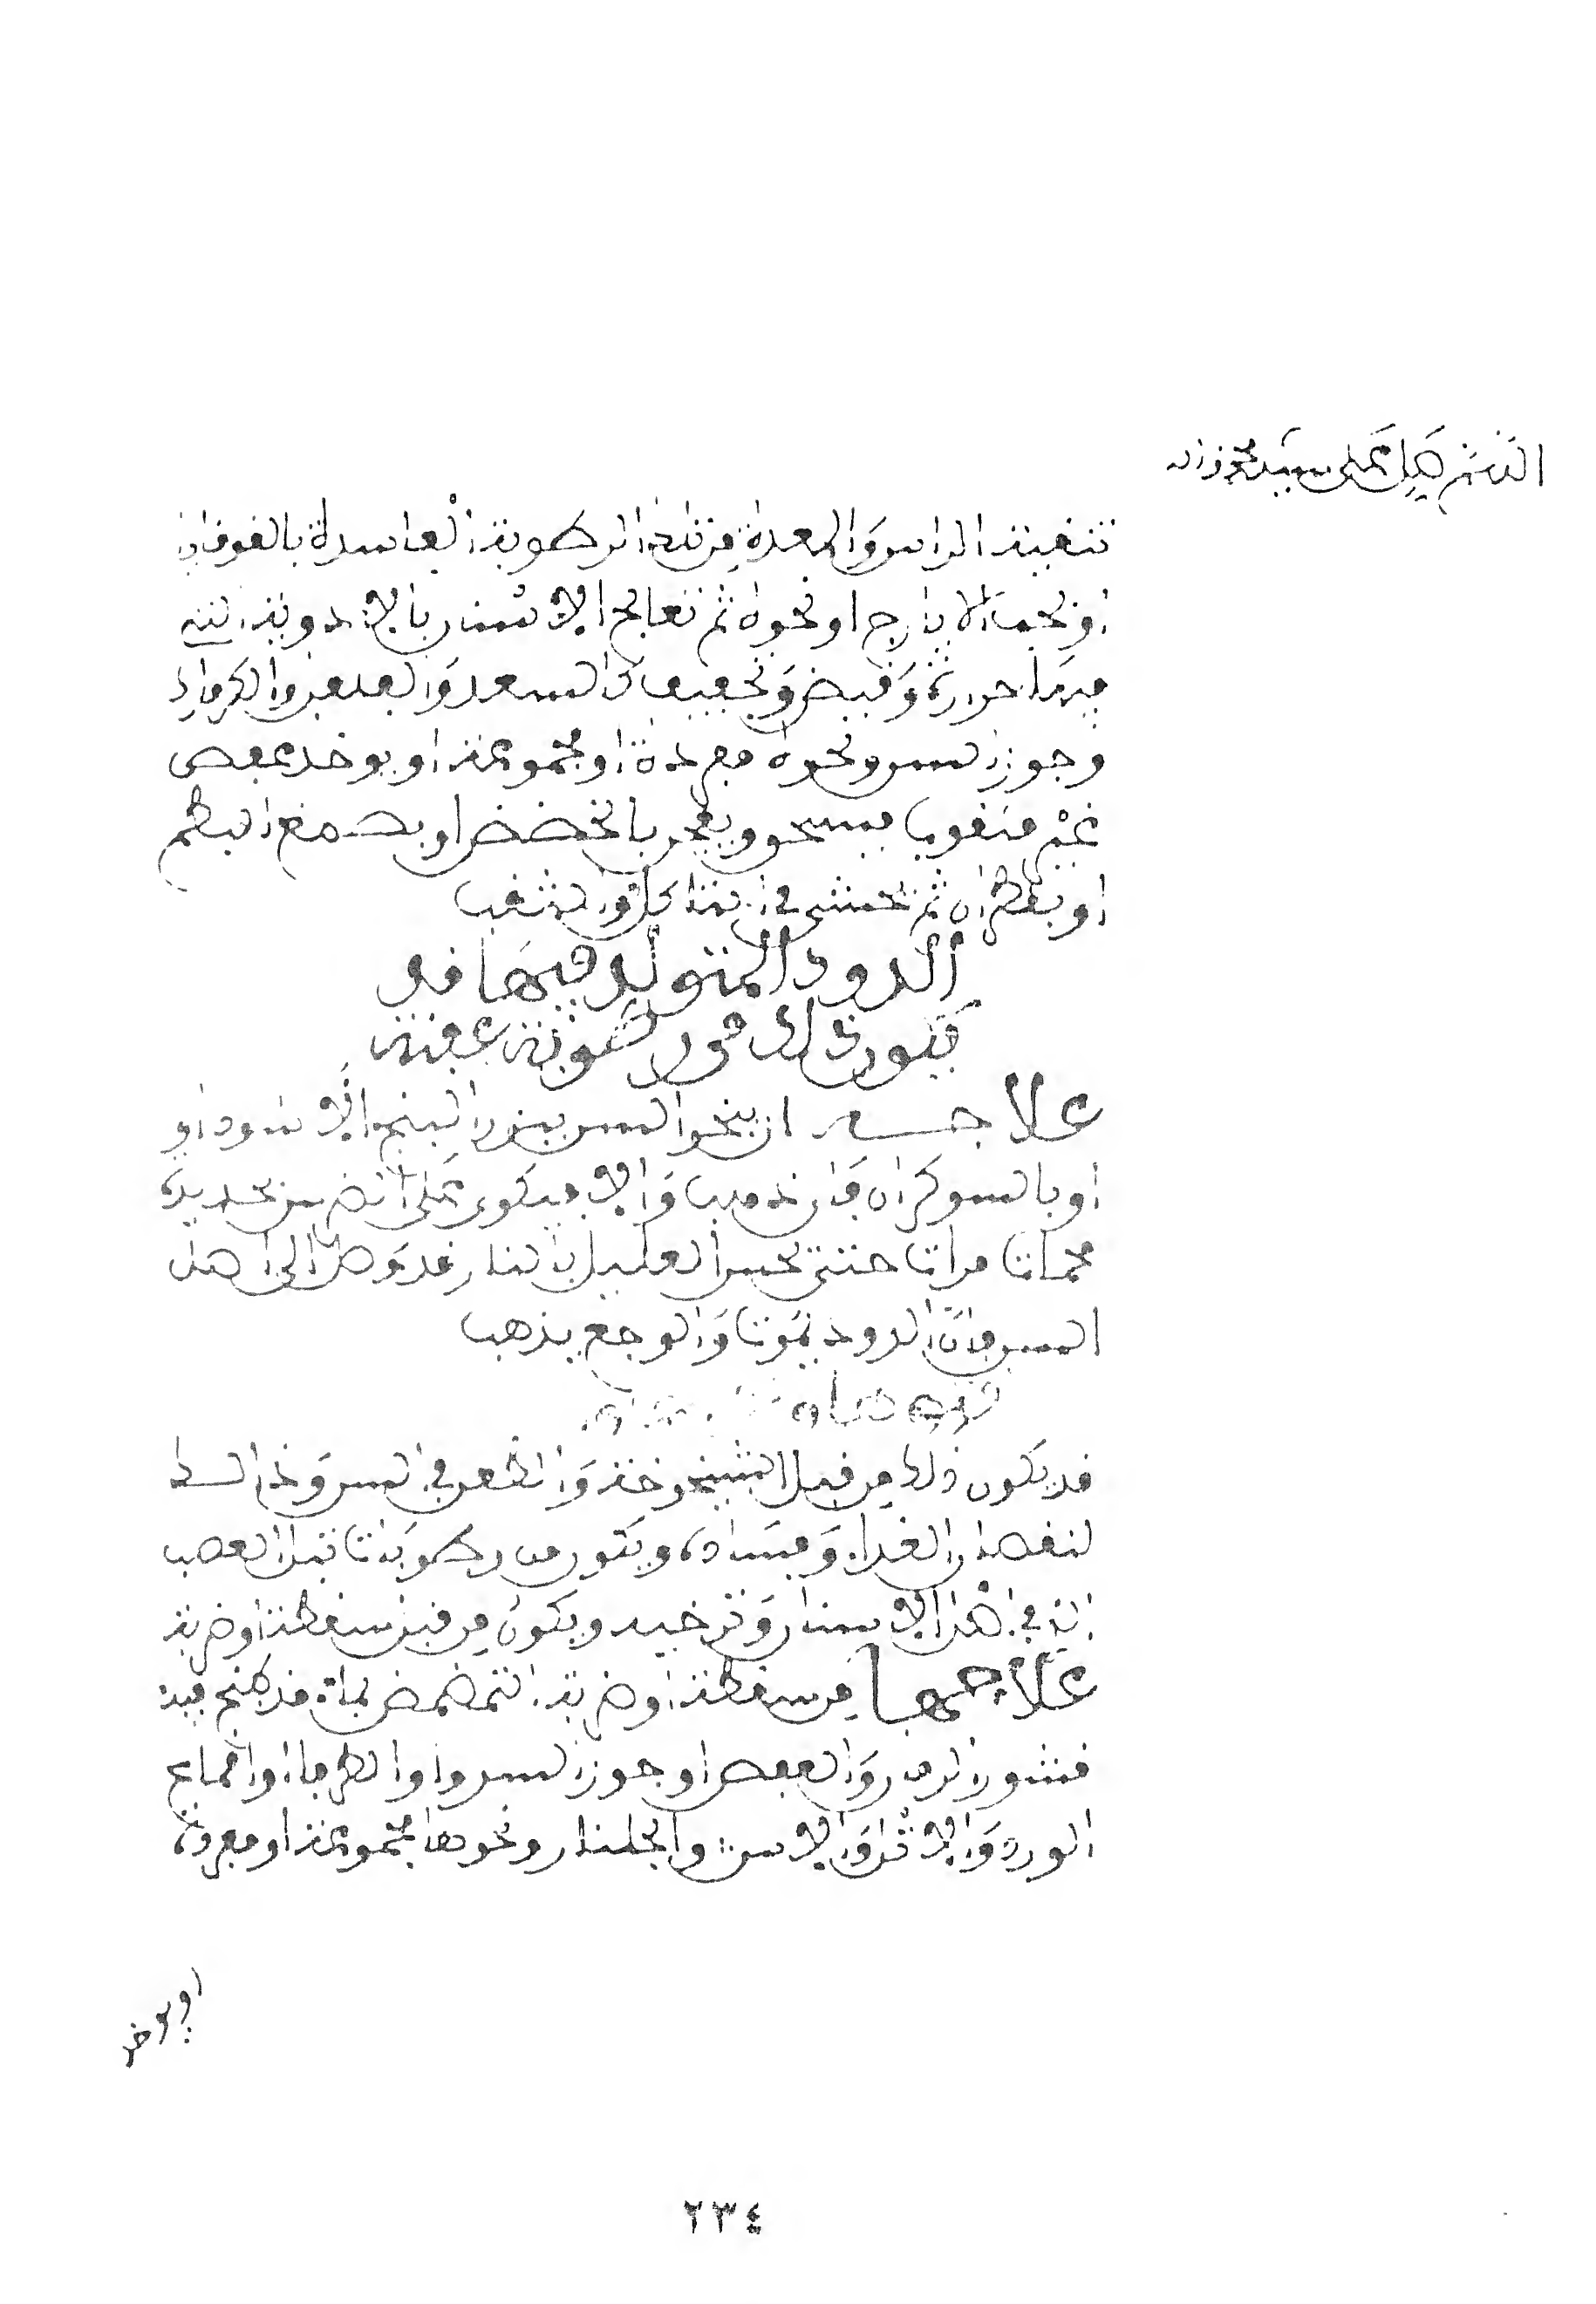 اللهم صل على سيدنا محمد واله
تنقية الراس والمعدة من تلك الرطوبة الفاسدة بالقوقايا
او بحب الايارج او نحوه ثم تعالج الاسنان بالادوية التي
فيها حرارة وقبض وتجفيف كالسعد والفلفل والكرمازك
وجوز السرو ونحوه مفردة او مجموعة او يوخذ عفص
غير مثقوب فيسحق ويعجن بالحضض او بصمغ البطم
او بقطران ثم تحشى في التاكل والثقب
الدود المتولد فيها قد
يتولد ذلك من رطوبة عفنة
علاجه ان يبخر السن ببزر البنج الاسود او
او بالسوكران فان ذهب والا فيكوى على الضرس بحديدة
محماة مرات حتى يحس العليل بالنار قد وصل الى اصل
السن فان الدود يموت والوجع يذهب
قد يكون ذلك من قبل الشيخوخة والضعف في السن وذلك
لنقصان الغذاء وفساده ويكون من رطوبة تبل العصب
الذي في هذا الاسنان وترخيه ويكون من قبل سقطة او ضربة
علاجها من سقطة او ضربة التمضمض بماء قد طبخ فيه
قشور الرمان والعفص او جوز السرو او الطرفا او اقماع
الورد والاثل والاس والجلنار ونحوها مجموعة او مفردة
او يوخذ
٢٣٤